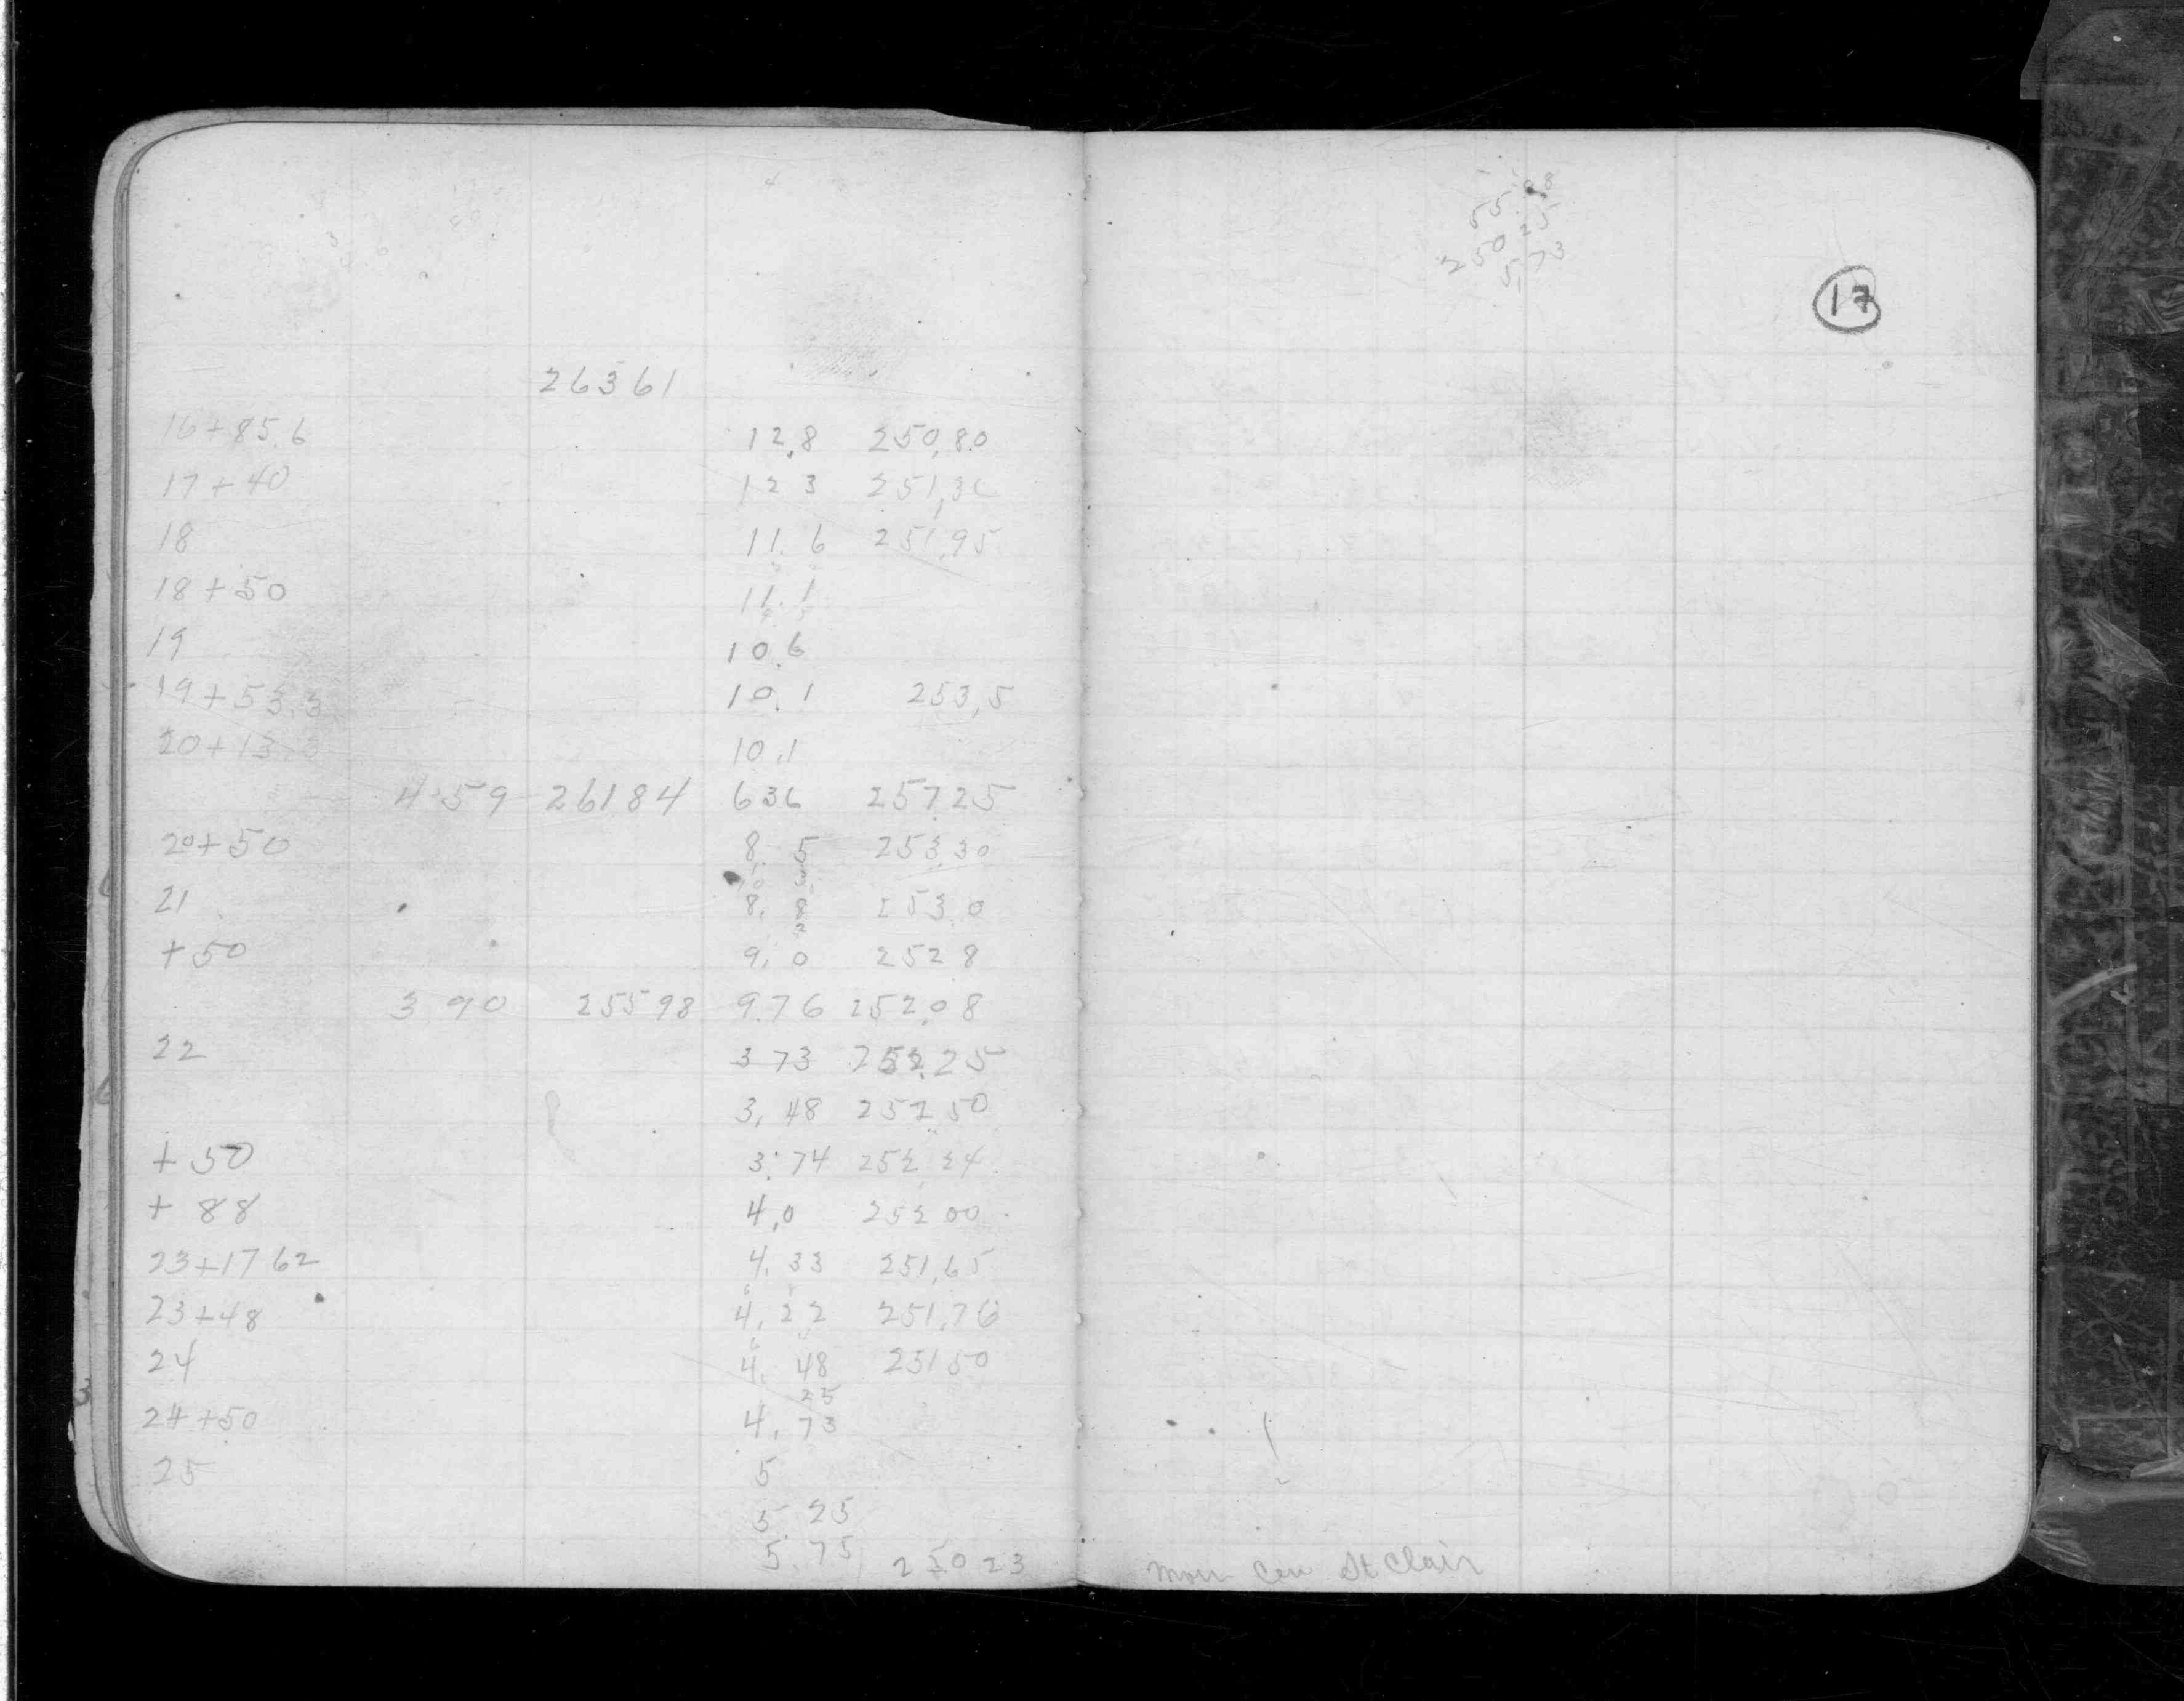 26361
16+85.6 12.8 250.80
17+40 12 3 251,30
18 11. 6 251.95
18+50 11. 1
19 10.6
19+53.3 10. 1 253,5
20+13.3 10.1
4 59 26184 636 257.25
20+50 8. 5 253.30
21 8. 8 253 0
+50 9. 0 252 8
3 90 25598 9.76 252.08
22 3 73 252.25
3. 48 252 50
+50 3. 74 252 24
+ 88 4.0 252 00
23+17 62 4. 33 251,65
23+48 4. 22 251.76
24 4. 48 251 50
25
24+50 4. 73
25 5
5. 25
5.75 250 23
55.98
250 25
5 73
17
St Clair